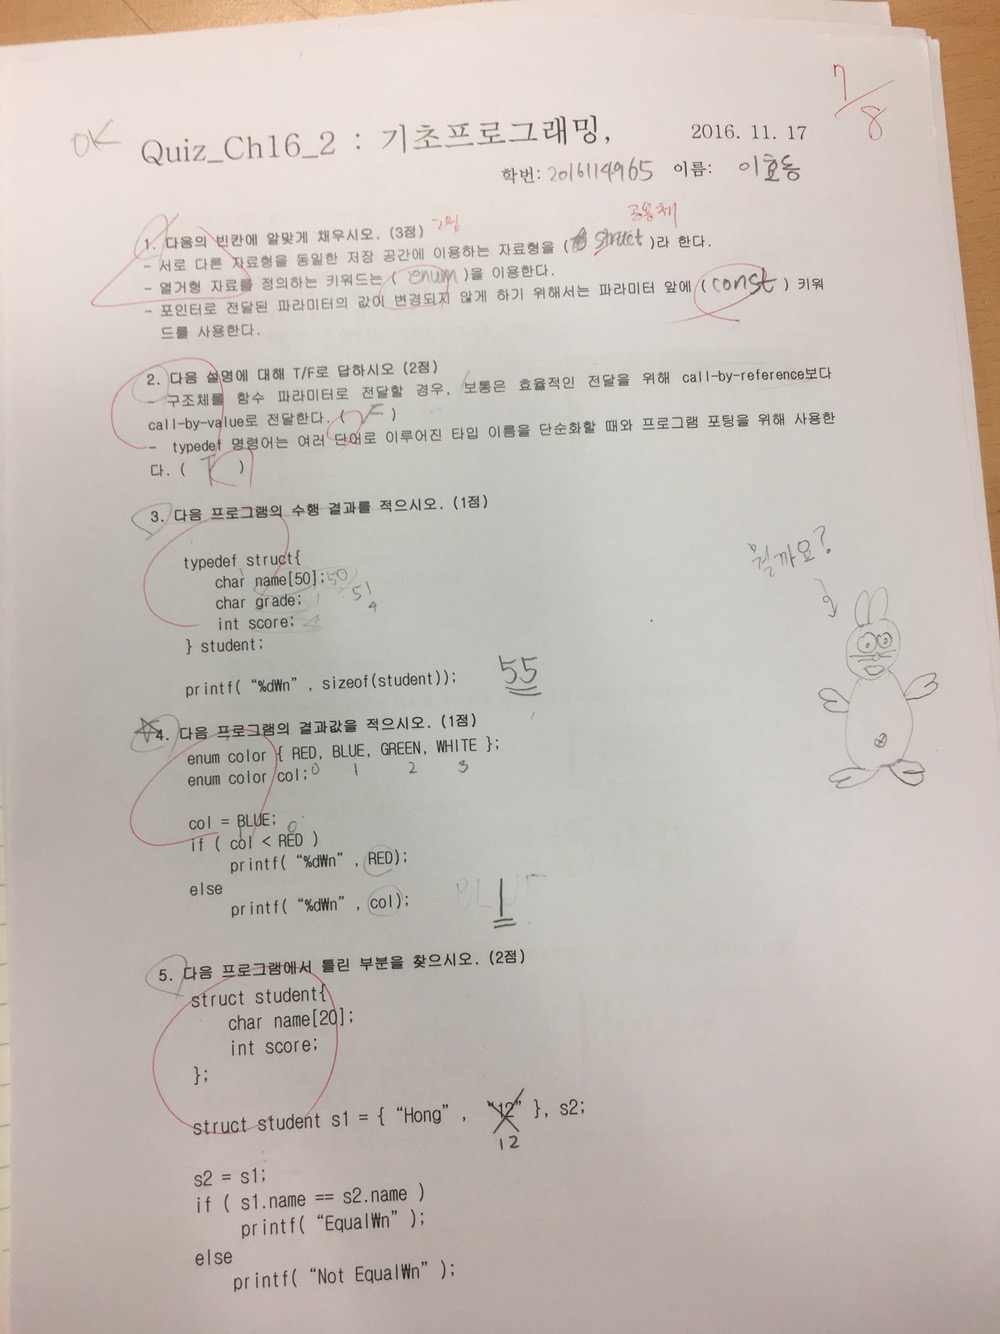 7/8
OK
Quiz_Ch16_2 : 기초프로그래밍,
2016. 11. 17
학번: 2016114965 이름: 이호동
1. 다음의 빈칸에 알맞게 채우시오. (3점) 2점
공용체
- 서로 다른 자료형을 동일한 저장 공간에 이용하는 자료형을 ( struct )라 한다.
- 열거형 자료를 정의하는 키워드는 ( enum )을 이용한다.
- 포인터로 전달된 파라미터의 값이 변경되지 않게 하기 위해서는 파라미터 앞에 ( const ) 키워
드를 사용한다.
2. 다음 설명에 대해 T/F로 답하시오 (2점)
- 구조체를 함수 파라미터로 전달할 경우, 보통은 효율적인 전달을 위해 call-by-reference보다
call-by-value로 전달한다. ( F )
- typedef 명령어는 여러 단어로 이루어진 타입 이름을 단순화할 때와 프로그램 포팅을 위해 사용한
다. ( T )
3. 다음 프로그램의 수행 결과를 적으시오. (1점)
typedef struct{
char name[50]; 50
char grade; 1 51
int score; 4 4
} student;
printf( “%d₩n” , sizeof(student)); 55
뭘까요?
☆4. 다음 프로그램의 결과값을 적으시오. (1점)
enum color { RED, BLUE, GREEN, WHITE };
enum color col; 0 1 2 3
col = BLUE;
1 0
if ( col < RED )
printf( “%d₩n” , RED);
else
printf( “%d₩n” , col); BLUE 1
5. 다음 프로그램에서 틀린 부분을 찾으시오. (2점)
struct student{
char name[20];
int score;
};
struct student s1 = { “Hong” , “12” }, s2;
12
s2 = s1;
if ( s1.name == s2.name )
printf( “Equal₩n” );
else
printf( “Not Equal₩n” );